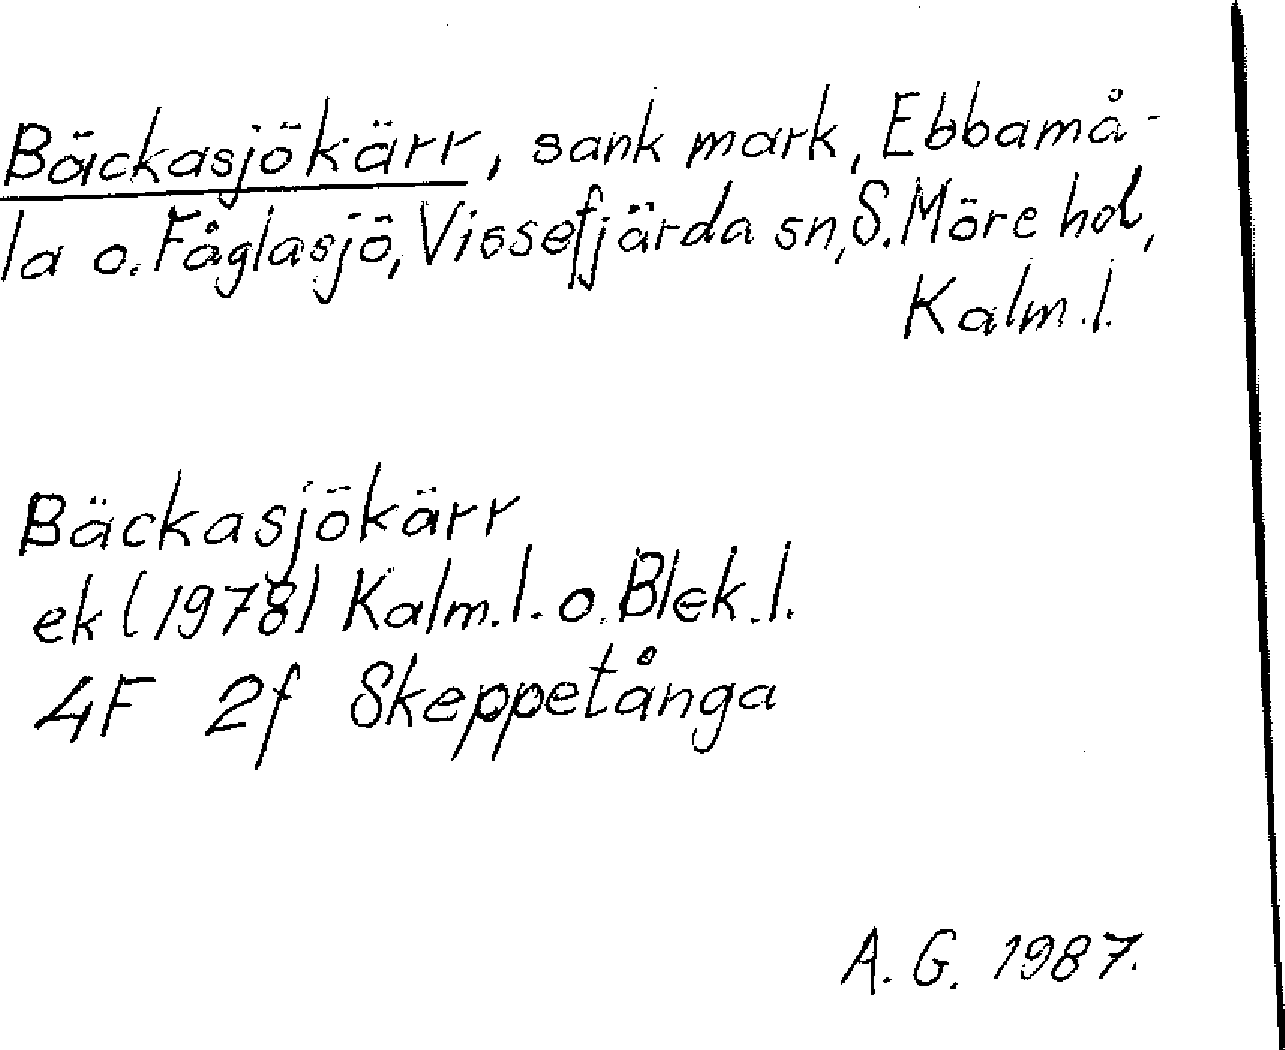 Bäckasjökärr, sank mark, Ebbamå-
la o. Fåglasjö, Vissefjärda sn, S. Möre hd,
Kalm. l.
Bäckasjökärr
ek (1978) Kalm. l. o. Blek. l.
4F 2f Skeppetånga
A. G. 1987.